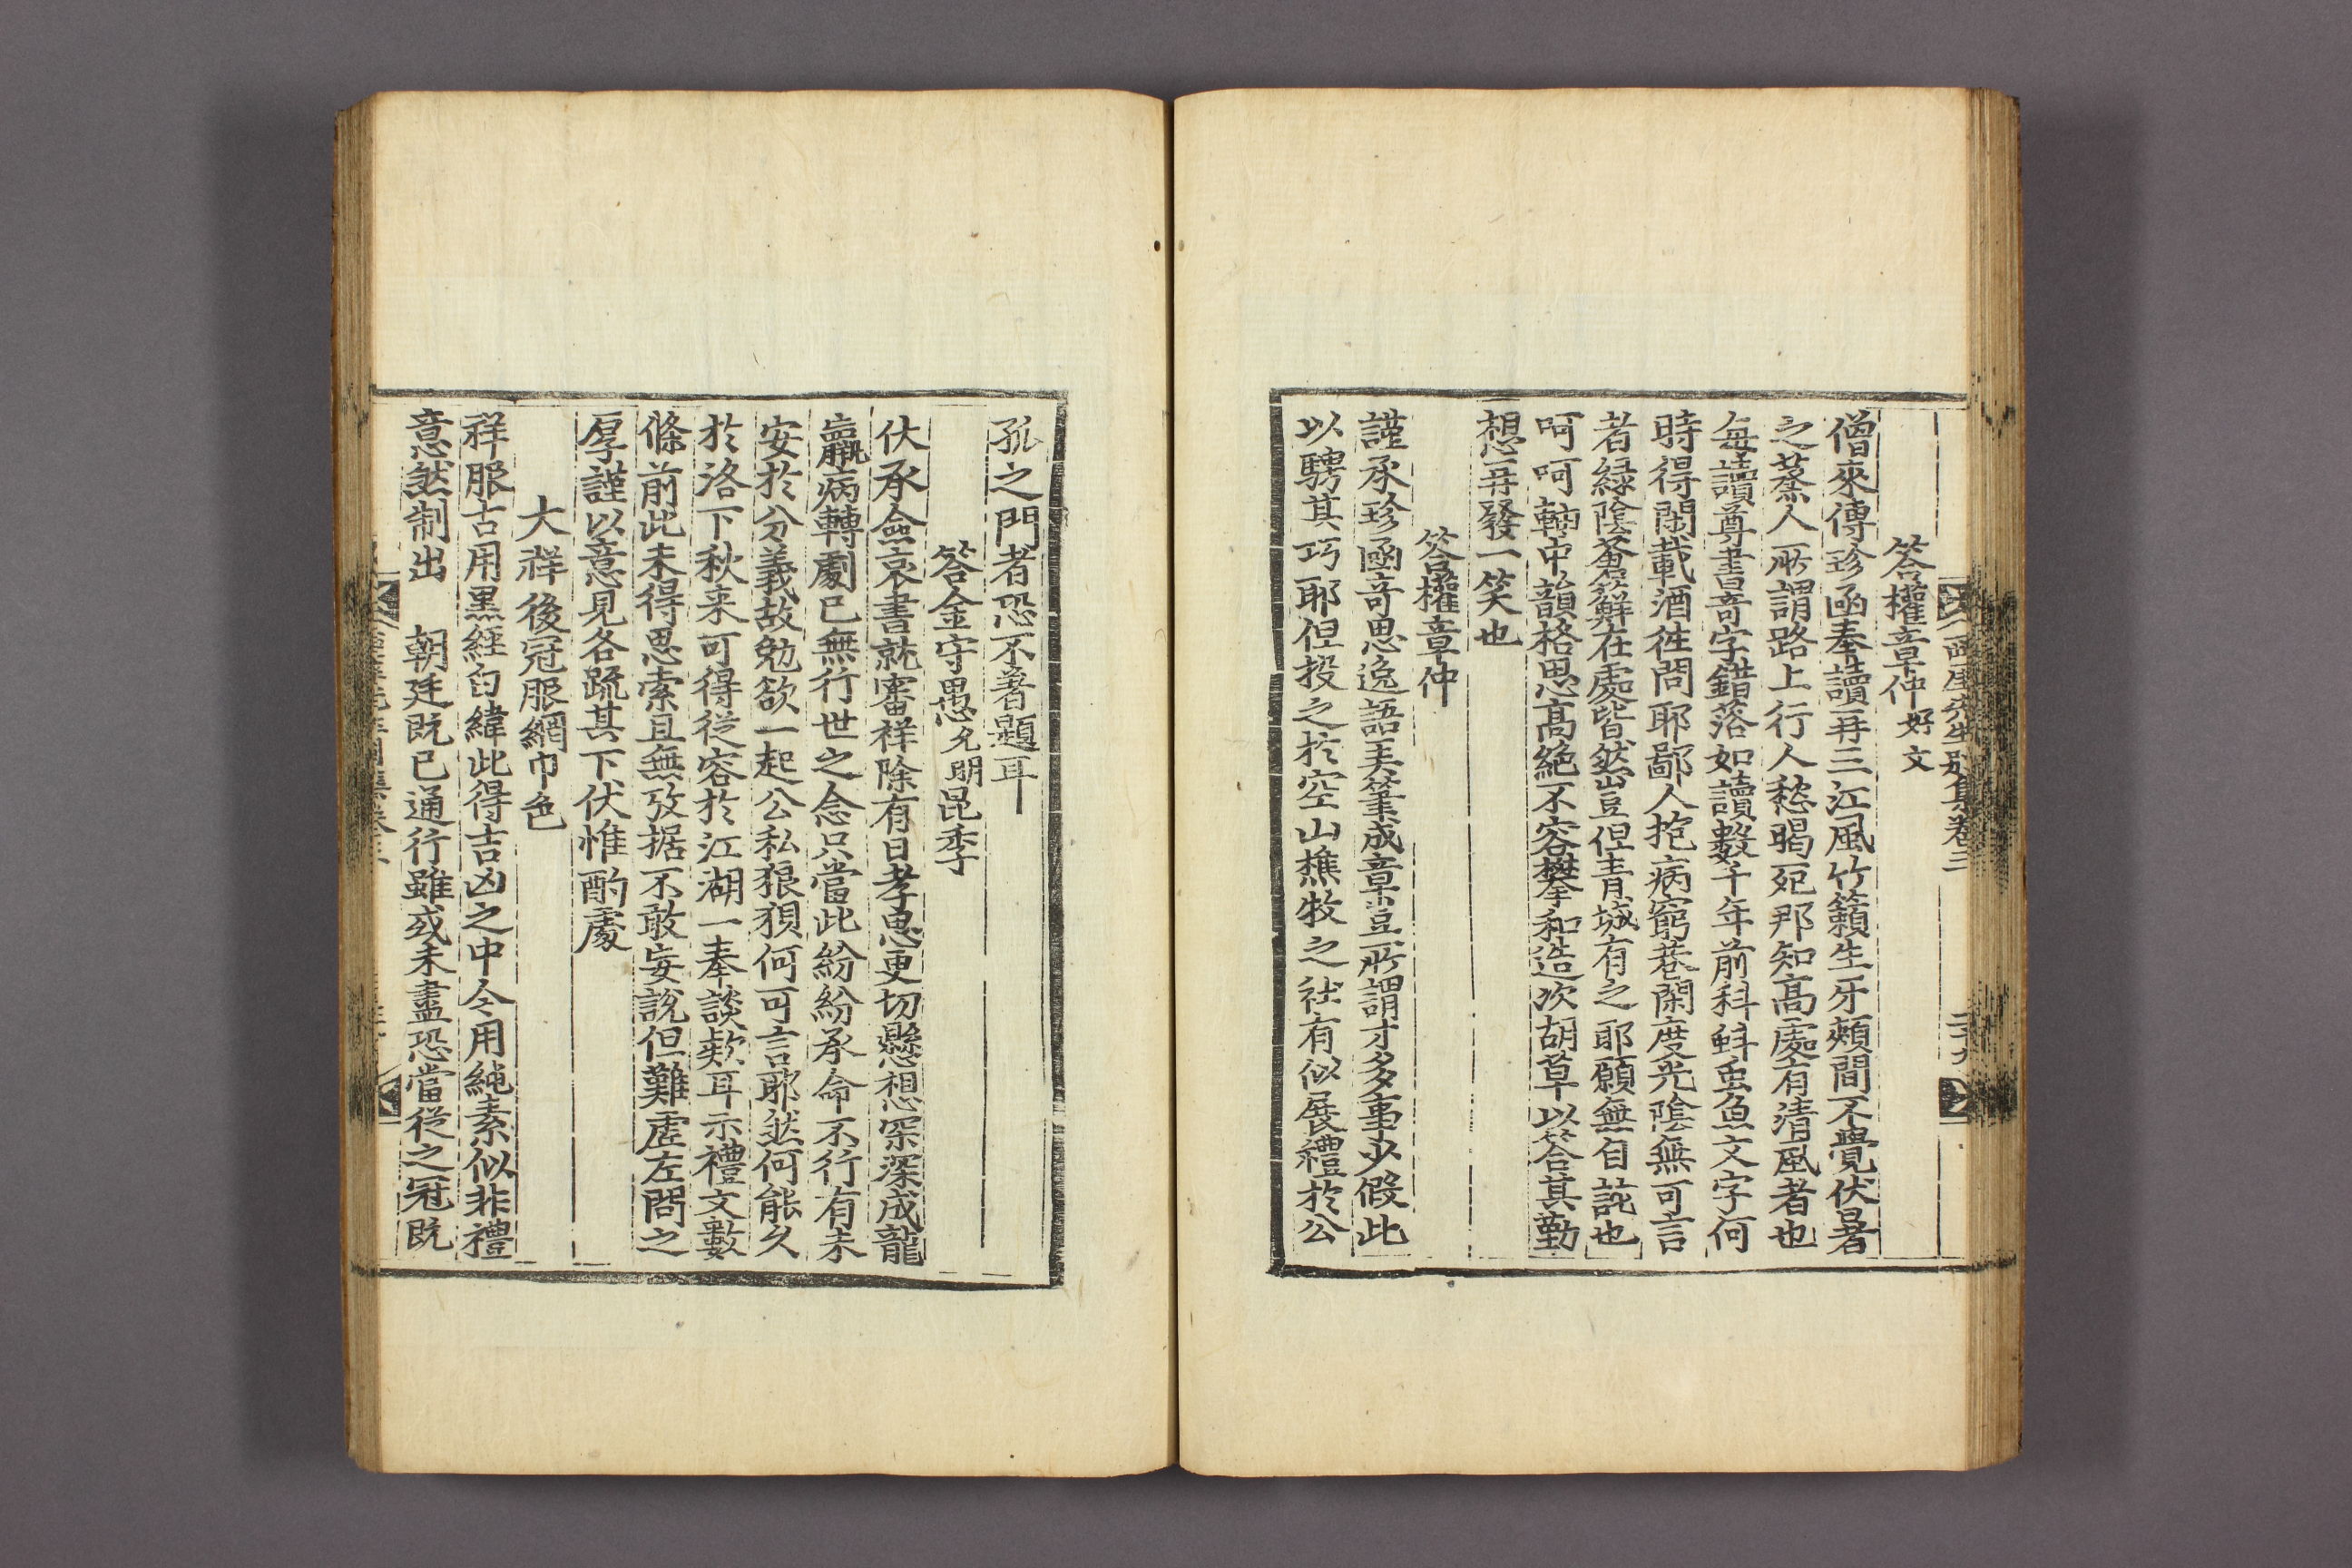 西厓先生別集卷三
二十九
答權章仲好文
僧來傳珍函奉讀再三江風竹籟生牙頰間不覺伏暑
之蒸人所謂路上行人愁暍死那知高處有淸風者也
每讀尊書奇字錯落如讀數千年前科蚪䖝魚文字何
時得閑載酒徃問耶鄙人抱病窮巷閑度光陰無可言
者緑陰蒼蘚在處皆然豈但靑城有之耶願無自詑也
呵呵軸中韻格思高絶不容攀和造次胡草以答其勤
想再發一笑也
答權章仲
謹承珍函奇思逸語美筆成章豈所謂才多事少假此
以騁其巧耶但投之於空山樵牧之社有似展禮於公
孤之門者恐不著題耳
答金守愚允明昆季
伏承僉哀書就審祥除有日孝思更切懸想深深成龍
羸病轉劇已無行世之念只當此紛紛承命不行有未
安於分義故勉欲一起公私狼狽何可言耶然何能久
於洛下秋来可得從容於江湖一奉談欵耳示禮文數
條前此未得思索且無攷据不敢妄說但難虛左問之
厚謹以意見各疏其下伏惟酌處
大祥後冠服網巾色
祥服古用黑經白緯此得吉凶之中今用純素似非禮
意然制出　朝廷既已通行雖或未盡恐當從之冠既